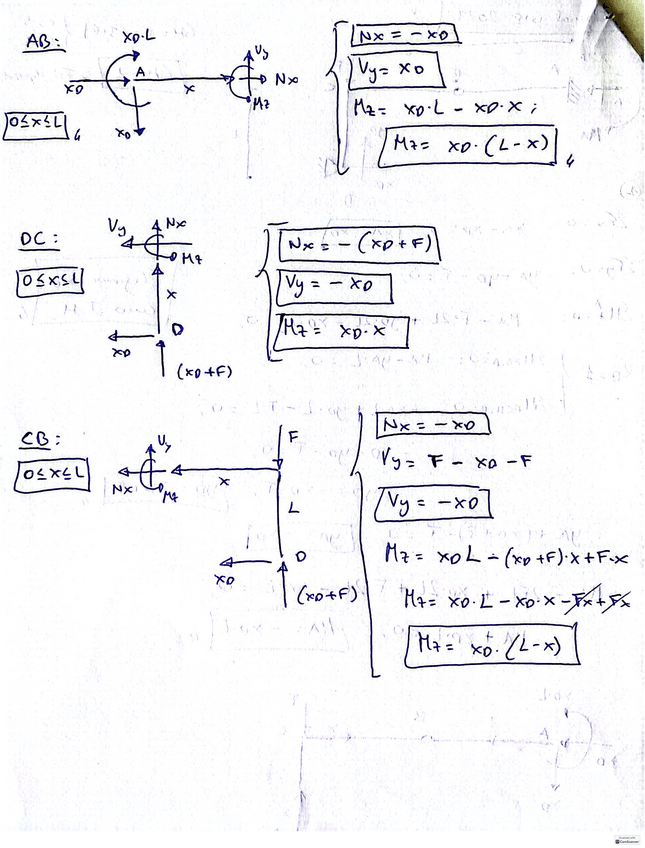 AB:
XD·L
Vy
XD
A
x
Nx
Mz
XD
0≤x≤L
Nx = -XD
Vy = XD
Mz = XD·L - XD·x ;
Mz = XD·(L-x)
DC:
Vy
Nx
Mz
0≤x≤L
x
D
XD
(XD+F)
Nx = -(XD+F)
Vy = -XD
Mz = XD·x
CB:
0≤x≤L
Vy
Nx
Mz
x
F
L
D
XD
(XD+F)
Nx = -XD
Vy = F - XD - F
Vy = -XD
Mz = XD L - (XD+F)·x + F·x
Mz = XD·L - XD·x - Fx + Fx
Mz = XD·(L-x)
CamScanner